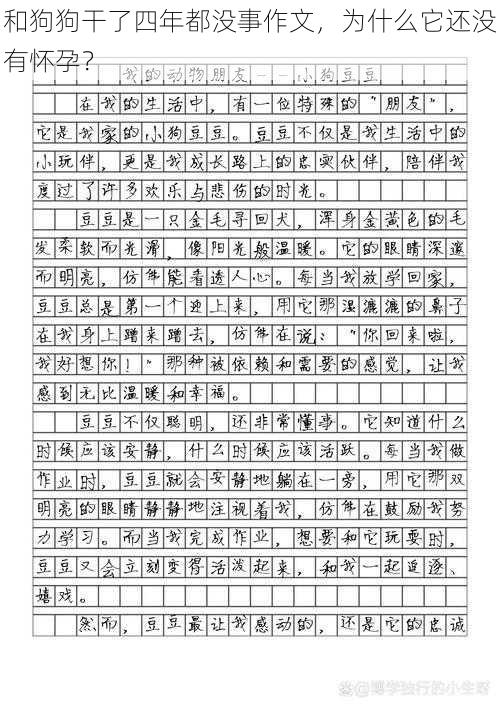 和狗狗干了四年都没事作文，为什么它还没
有怀孕？
我的动物朋友--小狗豆豆
在我的生活中，有一位特殊的“朋友”，
它是我家的小狗豆豆。豆豆不仅是我生活中的
小玩伴，更是我成长路上的忠实伙伴，陪伴我
度过了许多欢乐与悲伤的时光。
豆豆是一只金毛寻回犬，浑身金黄色的毛
发柔软而光滑，像阳光般温暖。它的眼睛深邃
而明亮，仿佛能看透人心。每当我放学回家，
豆豆总是第一个迎上来，用它那湿漉漉的鼻子
在我身上蹭来蹭去，仿佛在说：“你回来啦，
我好想你！”那种被依赖和需要的感觉，让我
感到无比温暖和幸福。
豆豆不仅聪明，还非常懂事。它知道什么
时候应该安静，什么时候应该活跃。每当我做
作业时，豆豆就会安静地躺在一旁，用它那双
明亮的眼睛静静地注视着我，仿佛在鼓励我努
力学习。而当我完成作业，想要和它玩耍时，
豆豆又会立刻变得活泼起来，和我一起追逐、
嬉戏。
然而，豆豆最让我感动的，还是它的忠诚
@博学独行的小生呀